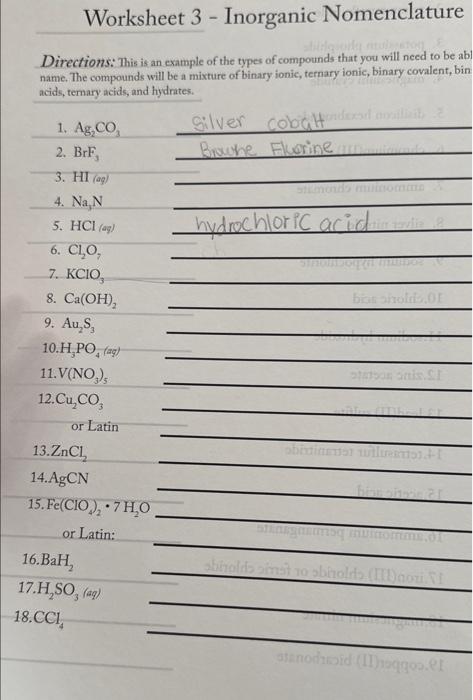 Worksheet 3 - Inorganic Nomenclature
Directions: This is an example of the types of compounds that you will need to be abl
name. The compounds will be a mixture of binary ionic, ternary ionic, binary covalent, bin
acids, ternary acids, and hydrates.
1. Ag₂CO₃ Silver cobalt
2. BrF₃ Fluorine
3. HI (aq)
4. Na₃N
5. HCl (aq) hydrochloric acid
6. Cl₂O₇
7. KClO₃
8. Ca(OH)₂
9. Au₂S₃
10.H₃PO₄ (aq)
11.V(NO₃)₅
12.Cu₂CO₃
or Latin
13.ZnCl₂
14.AgCN
15.Fe(ClO₄)₂ • 7 H₂O
or Latin:
16.BaH₂
17.H₂SO₃ (aq)
18.CCl₄